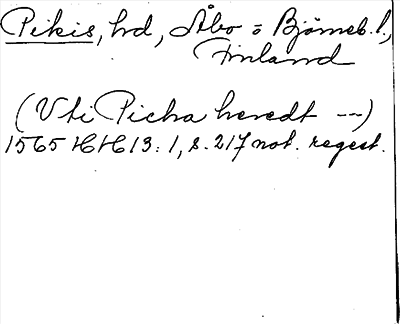 Pikis, hd, Åbo = Björneb. l.,
Finland
(Vti Picha heredt ---)
1565 HH 13: 1, s. 217 not. regest.